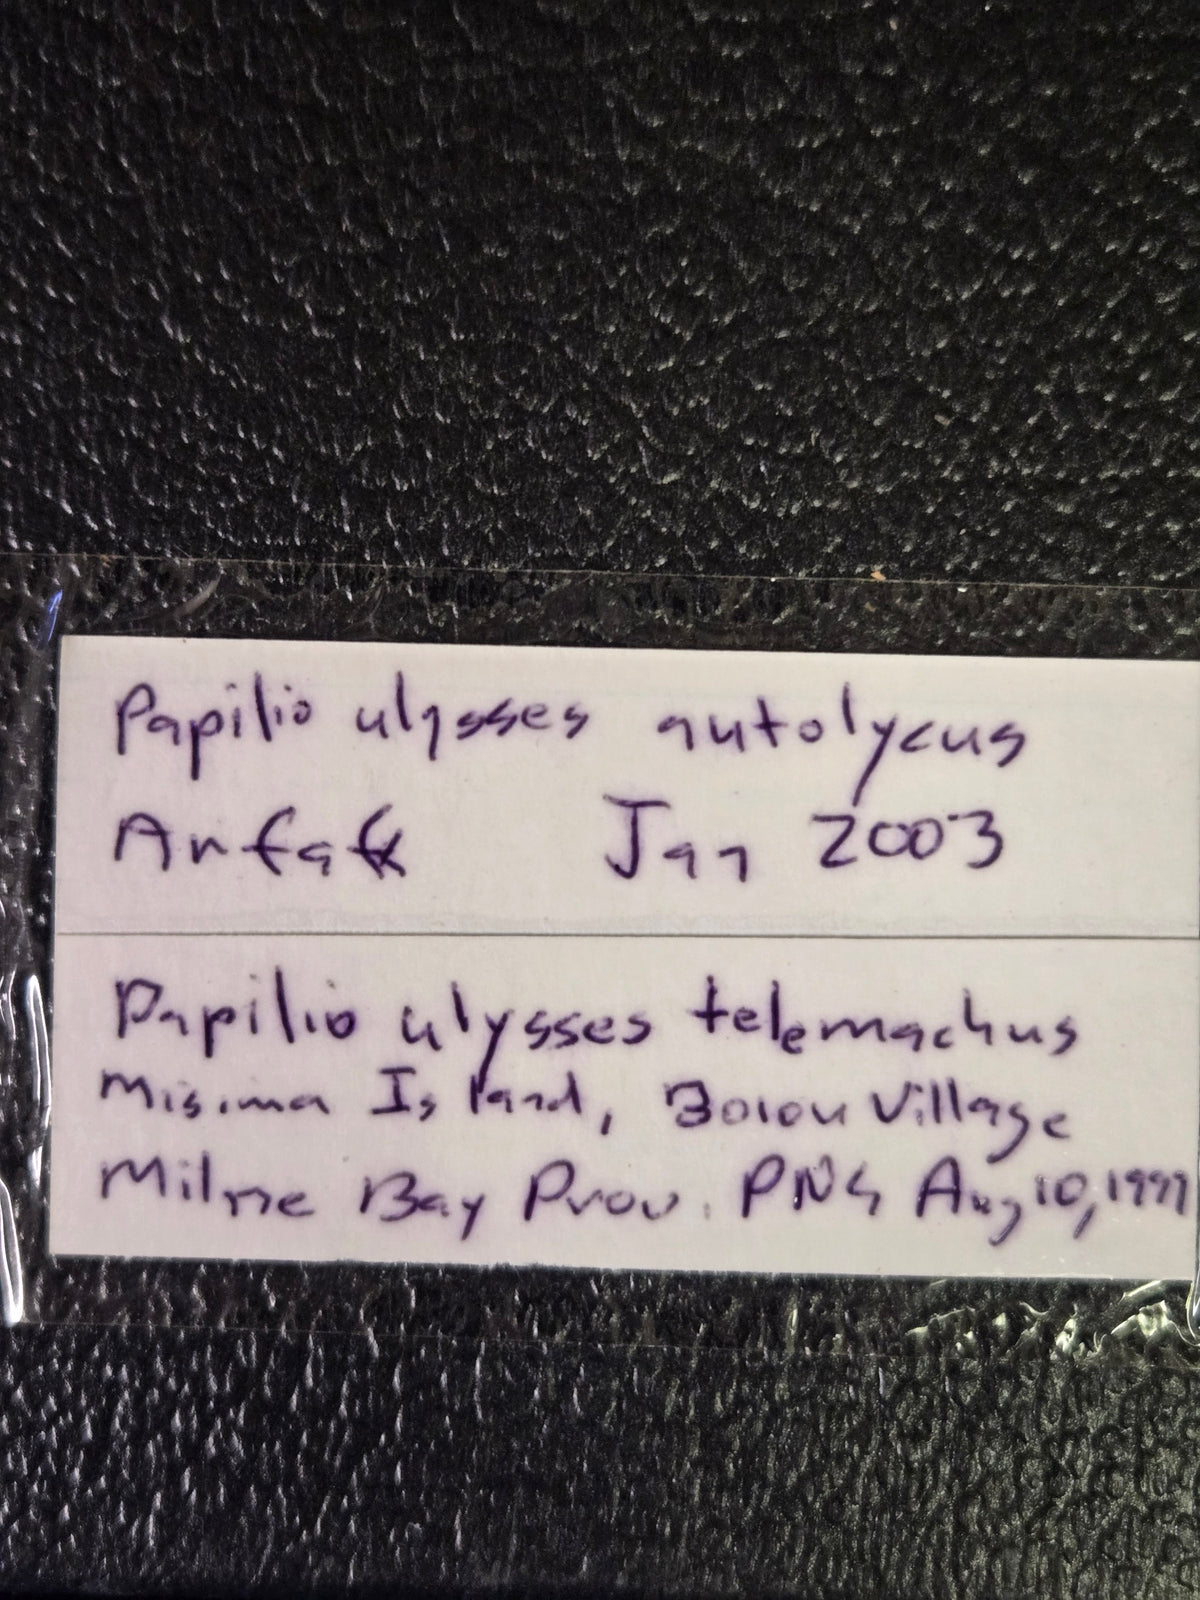 Papilio ulysses autolycus
Arfak Jan 2003
Papilio ulysses telemachus
Misima Island, Boiou Village
Milne Bay Prov. PNG Aug 10, 1999